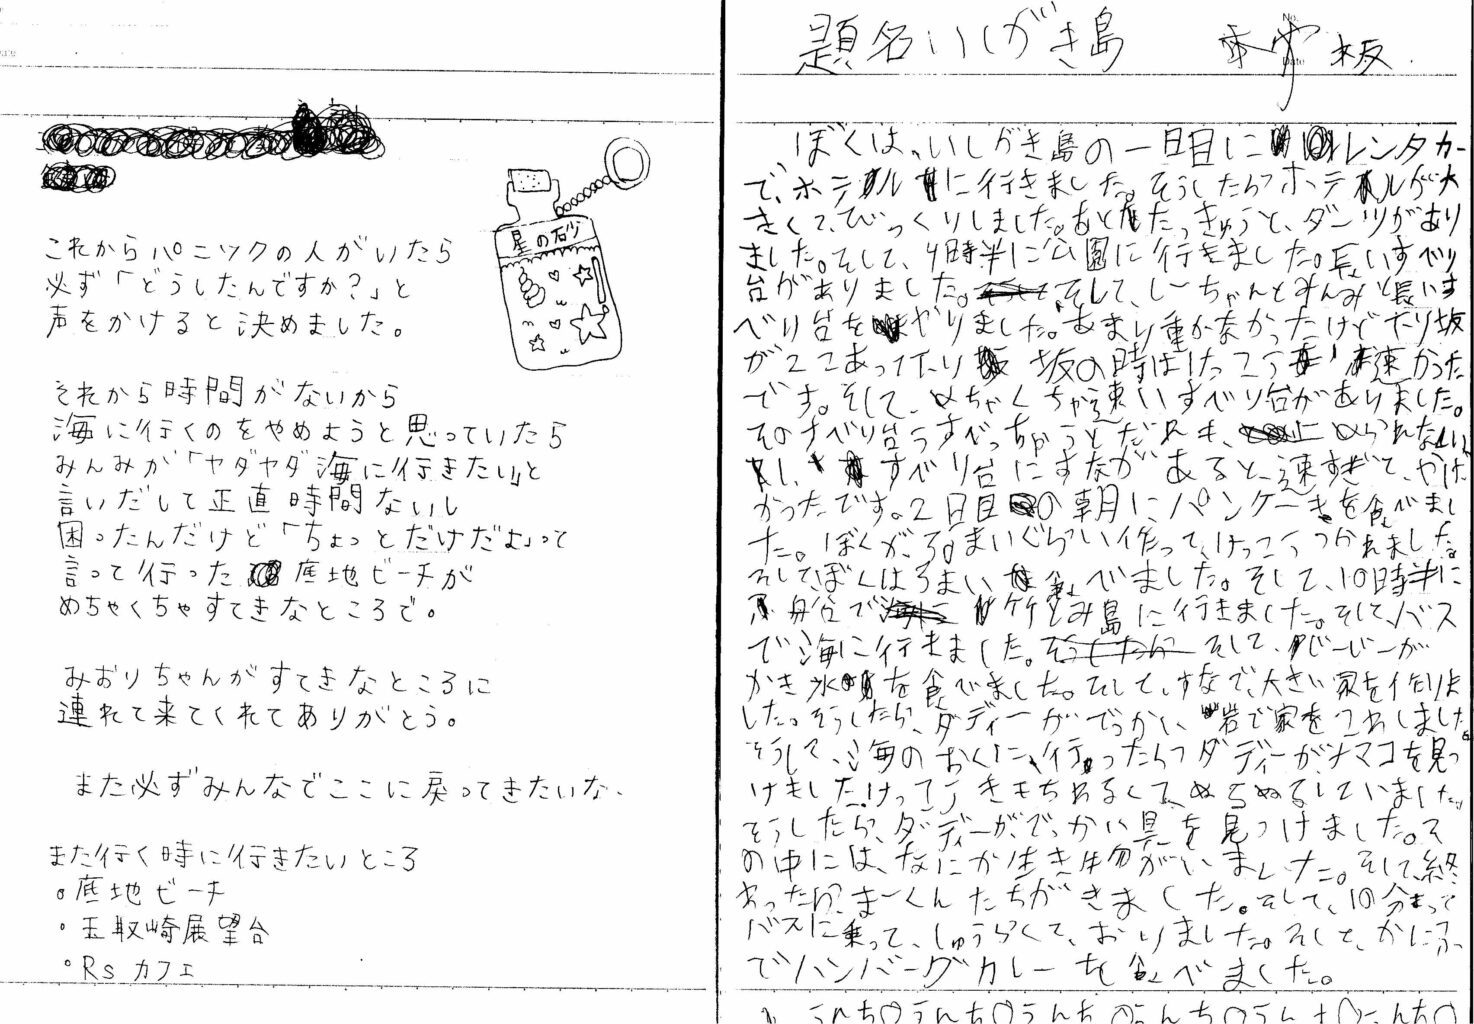 これからパニックの人がいたら
必ず「どうしたんですか?」と
声をかけると決めました。
星の砂
それから時間がないから
海に行くのをやめようと思っていたら
みんみが「ヤダヤダ海に行きたい」と
言いだして正直時間ないし
困ったんだけど「ちょっとだけだよ」って
言って行った底地ビーチが
めちゃくちゃすてきなところで。
みおりちゃんがすてきなところに
連れて来てくれてありがとう。
また必ずみんなでここに戻ってきたいな、
また行く時に行きたいところ
。底地ビーチ
・玉取崎展望台
。Rs カフェ
題名いしがき島
No.
Date
ぼくは、いしがき島の一日目にレンタカー
で、ホテルに行きました。そうしたらホテルが大
きくて、びっくりしました。あとたっきゅうと、ダーツがあり
ました。そして、9時半に公園に行きました。長いすべり
台がありました。そして、しーちゃんとみんみと長いす
べり台をやりました。あまり重かなかったけど下り坂
が2こあって下り坂の時はけっこう速かった
です。そして、めちゃくちゃ速いすべり台がありました。
そのすべり台うすべっちゃうとだれも、とめられない
し、すべり台にすながあると、速すぎて、やば
かったです。2日目の朝に、パンケーキを食べまし
た。ぼくが、3まいぐらい作って、けっこうつかれました。
そして、ぼくは3まい食べました。そして、10時半に
船で竹とみ島に行きました。そして、バス
で海に行きました。そして、バーバーが
かき氷を食べました。そして、すなで、大きい家を作りま
した。そうしたら、ダディーがでっかい、岩で家をこわしました。
そうして、海のおくに、行ったらダディーが、ナマコを見つ
けました。けっこうきもちわるくて、ぬるぬるしていました。
そうしたら、ダディーが、でっかい貝を見つけました。そ
の中には、なにか生き物がいました。そして、終
わったら、まーくんたちがきました。そして、10分まって
バスに乗って、しゅうらくて、おりました。そして、かにふ
でハンバーグカレーを食べました。